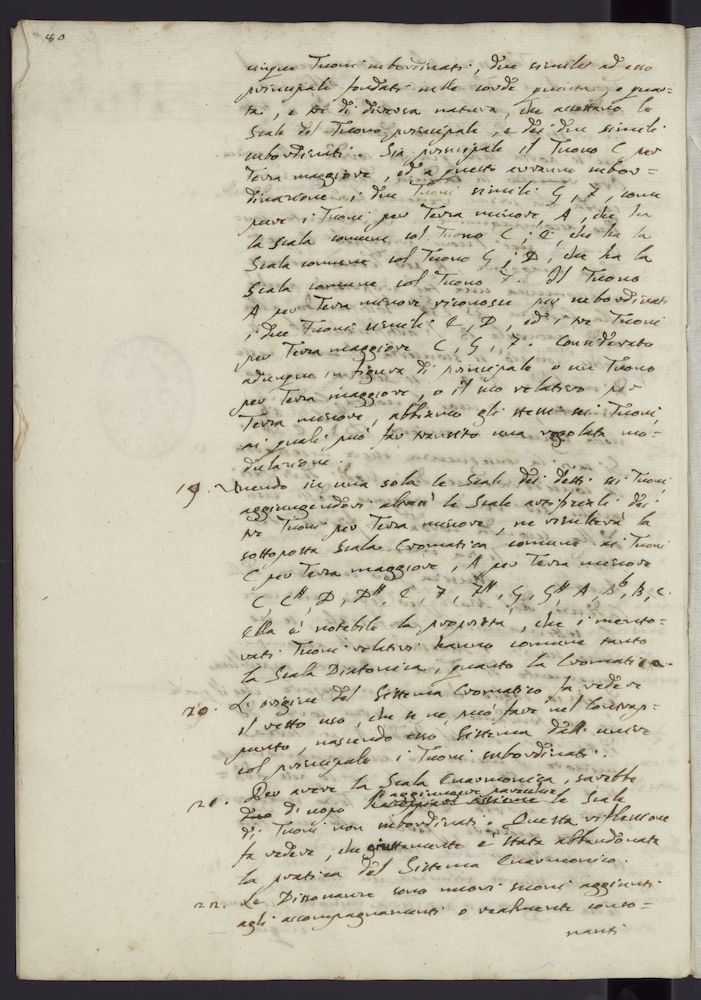 80
cinque Tuoni subordinati, due simili ad esso
principale fondati nelle corde quinta, e quar=
ta, e tre di diversa natura, che accettano le
Scale del Tuono principale, e dei due simili
subordinati. Sia principale il Tuono C per
Terza maggiore, ed a questo avranno subor=
dinazione i due Tuoni simili G, F, come
pure i Tuoni per Terza minore, A, che ha
la scala comune col Tuono C; E, che ha la
Scala comune col Tuono G; D, che ha la
Scala comune col Tuono F. Il Tuono
A per Terza minore riconosce per subordinati
i due Tuoni simili E, D, ed i tre Tuoni
per Terza maggiore C, G, F. Considerato
adunque in figura di principale o un Tuono
per Terza maggiore, o il suo relativo per
Terza minore, abbiamo gli stessi sei Tuoni,
ai quali può far transito una regolata mo=
dulazione.
19. Unendo in una sola le Scale dei detti sei Tuoni,
aggiungendovi altresì le Scale artifiziali dei
tre Tuoni per Terza minore, ne risulterà la
sottoposta Scala Cromatica comune ai Tuoni
C per Terza maggiore, A per Terza minore
C, C#, D, D#, E, F, F#, G, G#, A, Bb, B, C.
Ella è notabile la proprietà, che i mento=
vati Tuoni relativi hanno comune tanto
la Scala Diatonica, quanto la Cromatica.
20. L'origine del Sistema Cromatico fa vedere
il retto uso, che se ne può fare nel Contrap=
punto, nascendo esso Sistema dall'unire
col principale i Tuoni subordinati.
21. Per avere la Scala Enarmonica, sarebbe
d'uopo aggiungere parecchie Scale
di Tuoni non subordinati. Questa riflessione
fa vedere, che giustamente è stata abbandonata
la pratica del Sistema Enarmonico.
22. Le Dissonanze sono nuovi suoni aggiunti
agli accompagnamenti o realmente conso=
nanti